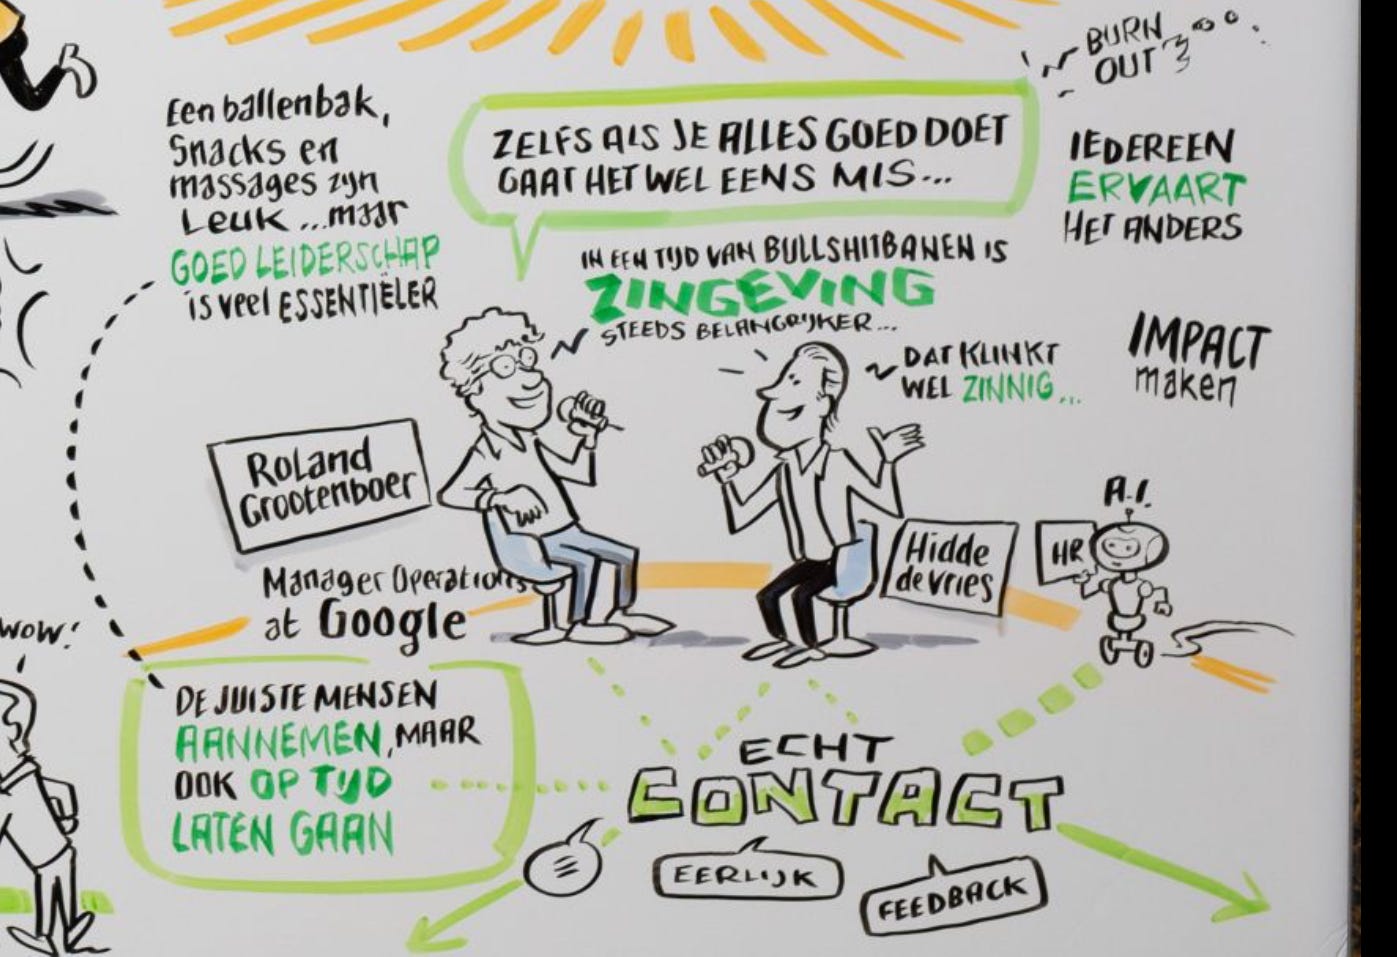 BURN
OUT
Een ballenbak,
Snacks en
massages zijn
Leuk ... maar
GOED LEIDERSCHAP
is veel ESSENTIËLER
ZELFS ALS JE ALLES GOED DOET
GAAT HET WEL EENS MIS...
IEDEREEN
ERVAART
HET ANDERS
IN EEN TIJD VAN BULLSHITBANEN IS
ZINGEVING
STEEDS BELANGRIJKER...
DAT KLINKT
WEL ZINNIG...
IMPACT
maken
Roland
Grootenboer
Manager Operations
at Google
Hidde
de Vries
A.I.
HR
WOW!
DE JUISTE MENSEN
AANNEMEN, MAAR
OOK OP TIJD
LATEN GAAN
ECHT
CONTACT
EERLIJK
FEEDBACK